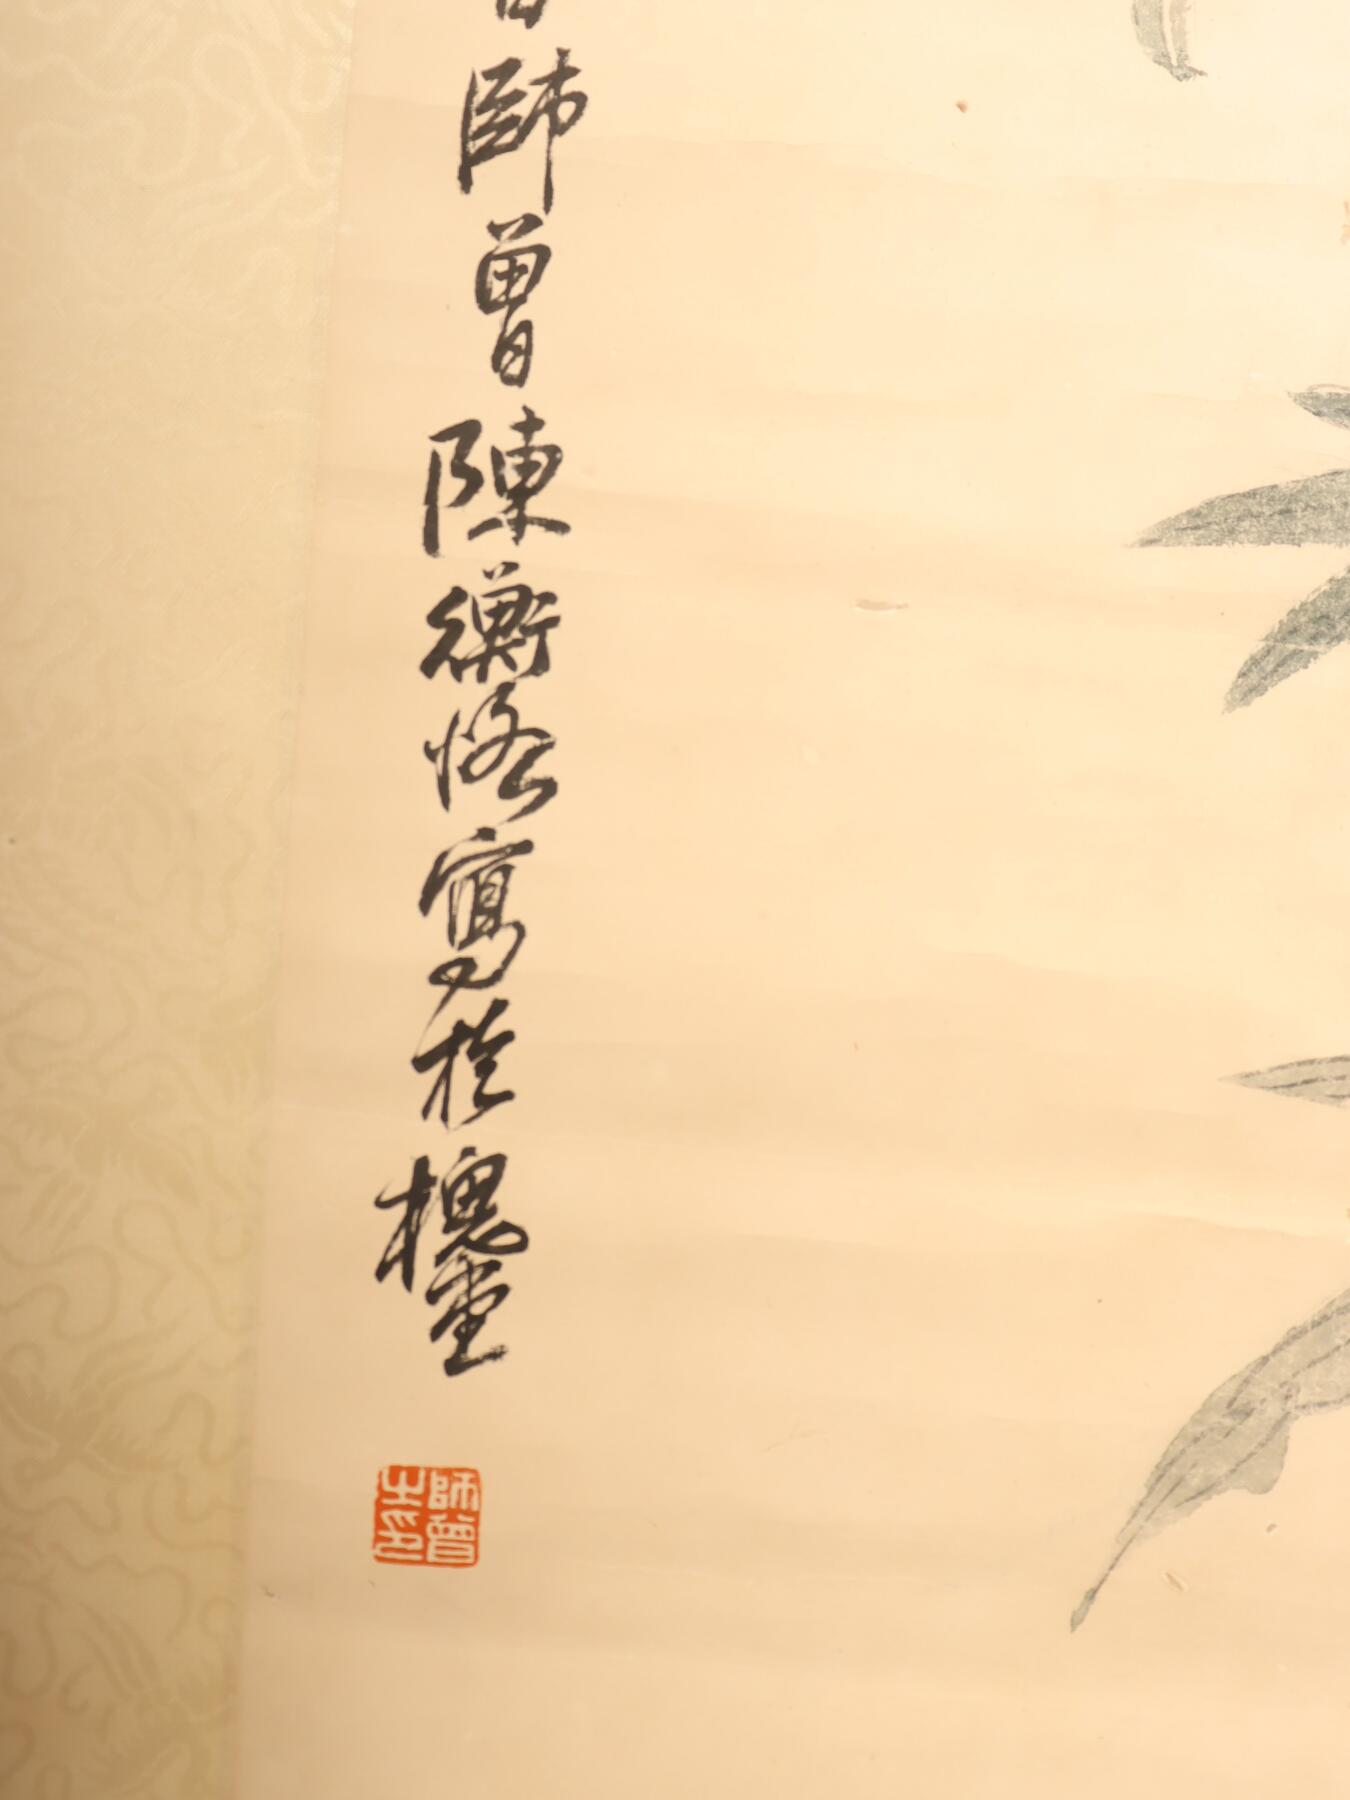 師曾陳衡恪寫於槐堂
師曾之印